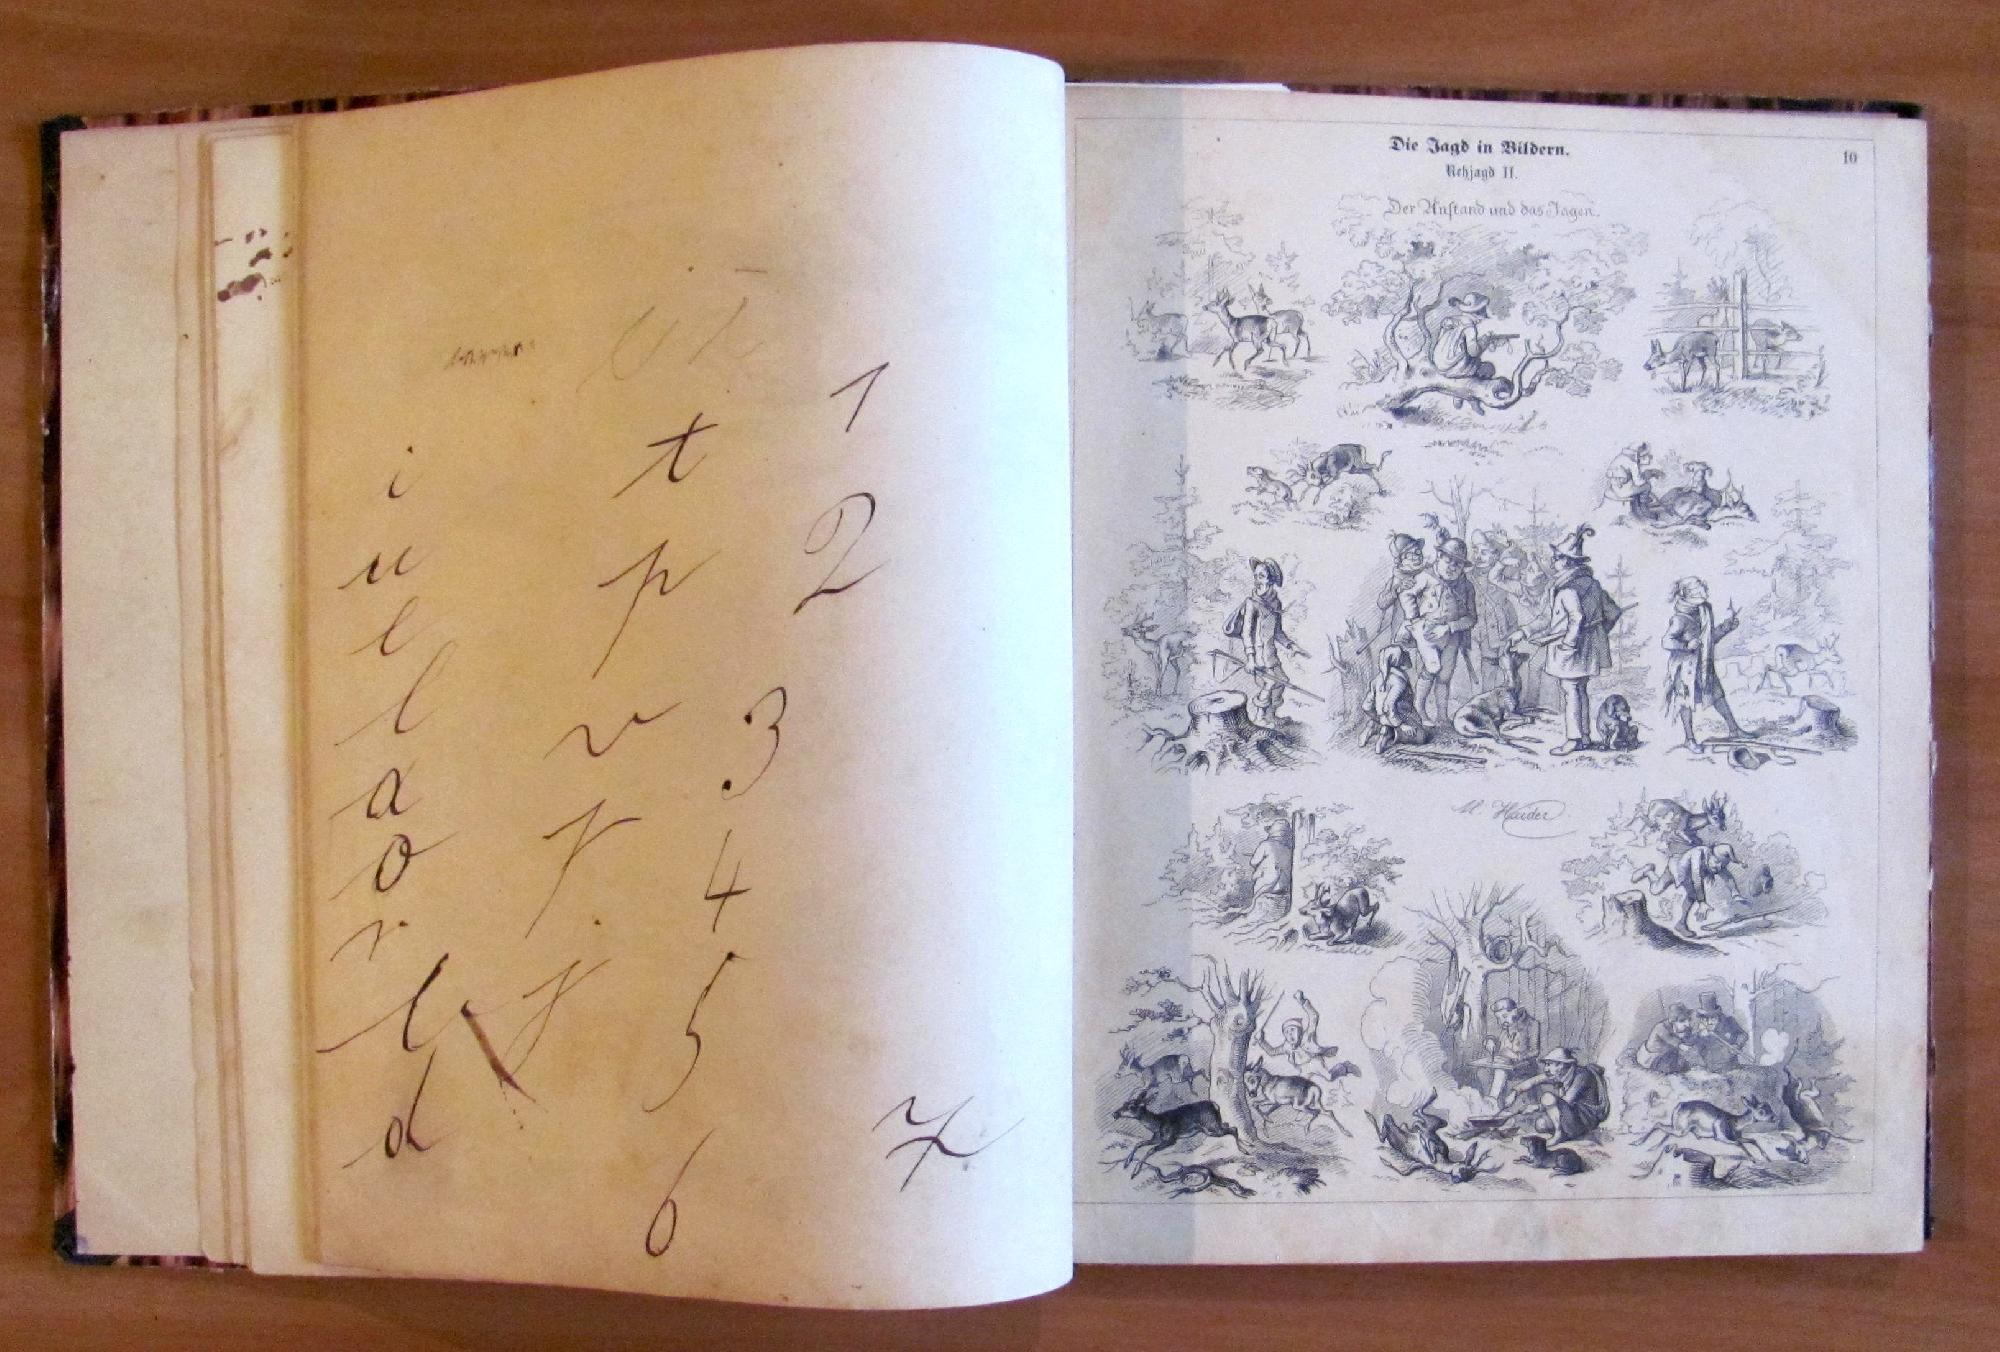 i
u
e
l
a
o
r
t
d
t
p
v
1
2
3
4
5
6
7
Die Jagd in Bildern.
10
Rehjagd II.
Der Anstand und das Jagen.
M. Haider